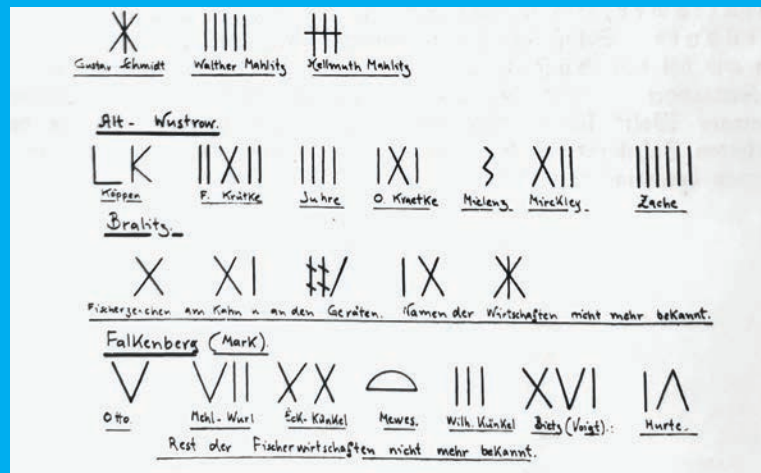 Gustav Schmidt Walther Mahlitz Hellmuth Mahlitz
Alt- Wustrow.
Köppen F. Krätke Juhre O. Kraetke Mielenz Mirckley Zache
Bralitz.
Fischerzeichen am Kahn u an den Geräten. Namen der Wirtschaften nicht mehr bekannt.
Falkenberg (Mark).
Otto. Mehl-Wurl Eck-Künkel Mewes. Wilh. Künkel Dietz (Voigt). Hurte.
Rest der Fischerwirtschaften nicht mehr bekannt.